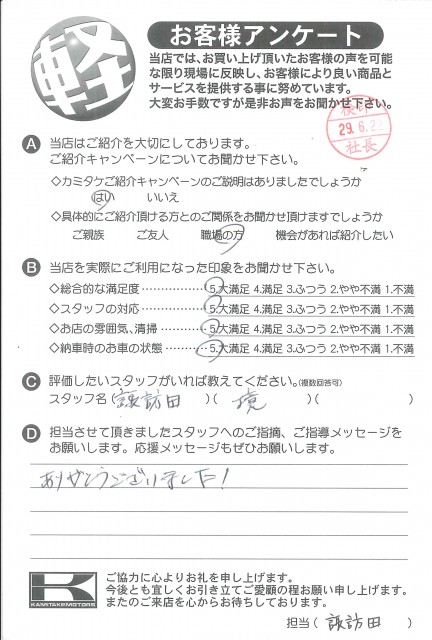 軽
お客様アンケート
当店では、お買い上げ頂いたお客様の声を可能
な限り現場に反映し、お客様により良い商品と
サービスを提供する事に努めています。
大変お手数ですが是非お声をお聞かせ下さい。
検印
29.6.22
社長
A 当店はご紹介を大切にしております。
ご紹介キャンペーンについてお聞かせ下さい。
◇カミタケご紹介キャンペーンのご説明はありましたでしょうか
はい いいえ
◇具体的にご紹介頂ける方とのご関係をお聞かせ頂けますでしょうか
ご親族 ご友人 職場の方 機会があれば紹介したい
B 当店を実際にご利用になった印象をお聞かせ下さい。
◇総合的な満足度……………5.大満足 4.満足 3.ふつう 2.やや不満 1.不満
◇スタッフの対応……………5.大満足 4.満足 3.ふつう 2.やや不満 1.不満
◇お店の雰囲気、清掃………5.大満足 4.満足 3.ふつう 2.やや不満 1.不満
◇納車時のお車の状態………5.大満足 4.満足 3.ふつう 2.やや不満 1.不満
C 評価したいスタッフがいれば教えてください。(複数回答可)
スタッフ名(諏訪田)(境)( )
D 担当させて頂きましたスタッフへのご指摘、ご指導メッセージを
お願いします。応援メッセージもぜひお願いします。
ありがとうございました!
K
KAMITAKEMOTORS
ご協力に心よりお礼を申し上げます。
今後とも宜しくお引き立てご愛顧の程お願い申し上げます。
またのご来店を心からお待ちしております。
担当(諏訪田)